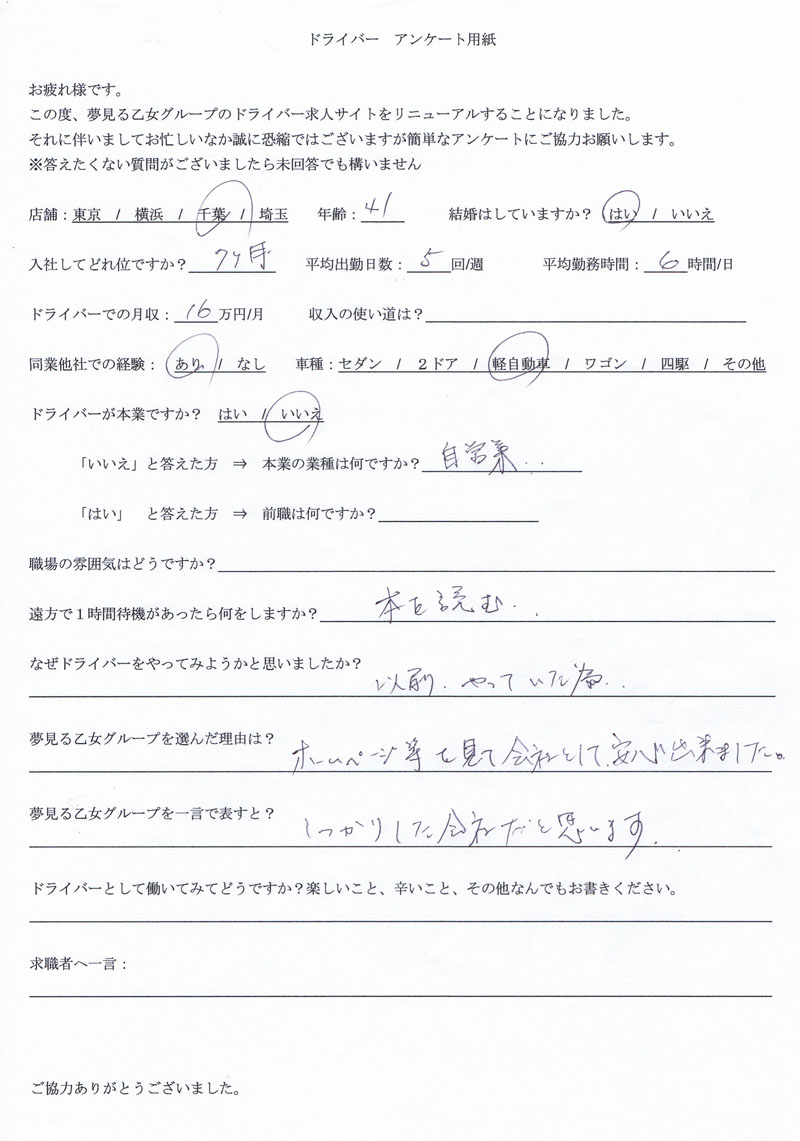 ドライバー　アンケート用紙
お疲れ様です。
この度、夢見る乙女グループのドライバー求人サイトをリニューアルすることになりました。
それに伴いましてお忙しいなか誠に恐縮ではございますが簡単なアンケートにご協力お願いします。
※答えたくない質問がございましたら未回答でも構いません
店舗：東京　/　横浜　/　千葉　/　埼玉　　年齢：41　　結婚はしていますか？　はい　/　いいえ
入社してどれ位ですか？ 7ヶ月　　平均出勤日数：5回/週　　平均勤務時間：6時間/日
ドライバーでの月収：16万円/月　　収入の使い道は？
同業他社での経験：　あり　/　なし　　車種：セダン　/　２ドア　/　軽自動車　/　ワゴン　/　四駆　/　その他
ドライバーが本業ですか？　はい　/　いいえ
「いいえ」と答えた方　⇒　本業の業種は何ですか？ 自営業..
「はい」　と答えた方　⇒　前職は何ですか？
職場の雰囲気はどうですか？
遠方で１時間待機があったら何をしますか？ 本を読む..
なぜドライバーをやってみようかと思いましたか？
以前、やっていた為..
夢見る乙女グループを選んだ理由は？
ホームページ等を見て会社として、安心出来ました。
夢見る乙女グループを一言で表すと？
しっかりした会社だと思います..
ドライバーとして働いてみてどうですか？楽しいこと、辛いこと、その他なんでもお書きください。
求職者へ一言：
ご協力ありがとうございました。